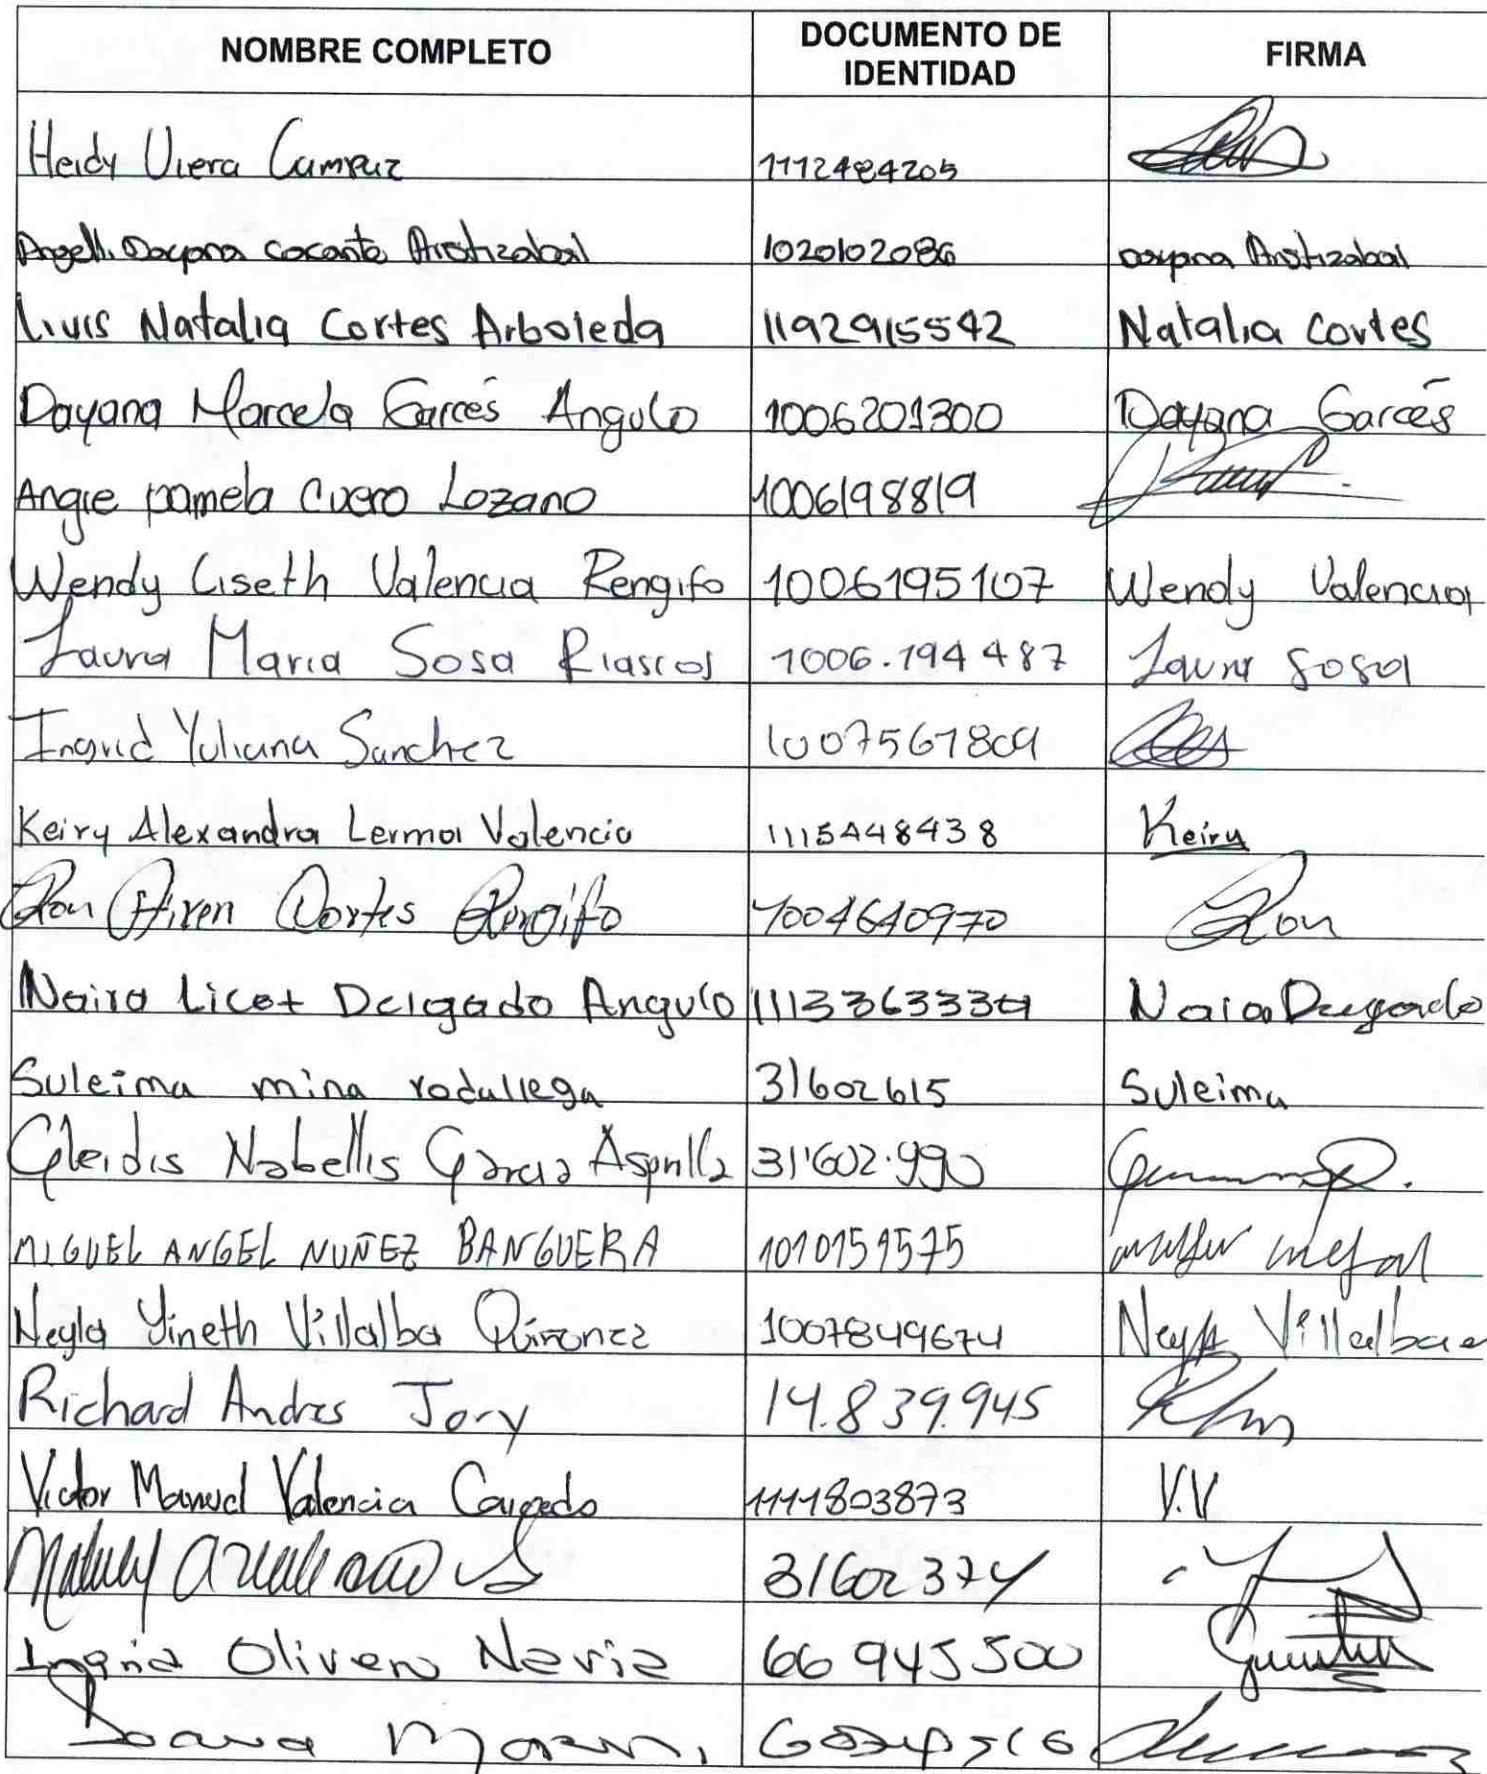 NOMBRE COMPLETO DOCUMENTO DE IDENTIDAD FIRMA
Heidy Viera Campaz 1112484205
Dayana Aristizabal 1020102086 Dayana Aristizabal
Livis Natalia Cortes Arboleda 1192915542 Natalia Cortes
Dayana Marcela Garcés Angulo 1006201300 Dayana Garcés
Angie pamela Cuero Lozano 1006198819
Wendy Liseth Valencia Rengifo 1006195107 Wendy Valencia
Laura Maria Sosa Riascos 1006.194487 Laura Sosa
Ingrid Yuliana Sanchez
Keiry Alexandra Lerma Valencia 1115448438 Keiry
Cortes Rengifo 1004640970
Naira Licet Delgado Angulo Delgado
Suleima mina rodallega 31602615 Suleima
Gleidis Nabellis Garcia Asprilla 31'602.990
MIGUEL ANGEL NUÑEZ BANGUERA 1010159575
Neyla Yineth Villalba Quironez 1007849674 Neyla Villalba
Richard Andres Jory 14.839.945
Victor Manuel Valencia Caicedo 1111803873 V.V
31602374
Olivero 66 945500